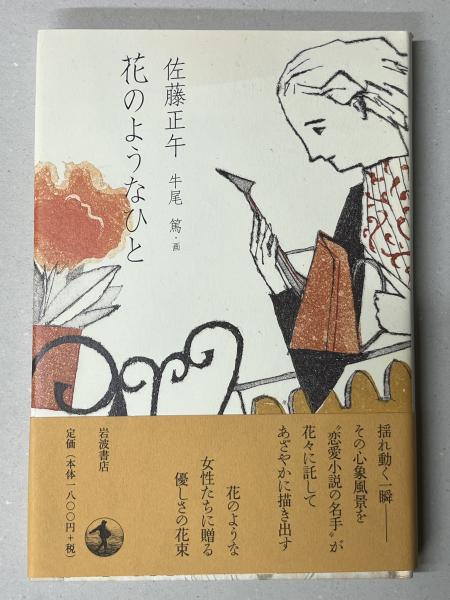 佐藤正午
牛尾 篤・画
花のようなひと
揺れ動く一瞬――
その心象風景を
〝恋愛小説の名手〟が
花々に託して
あざやかに描き出す
花のような
女性たちに贈る
優しさの花束
岩波書店
定価(本体一八〇〇円+税)